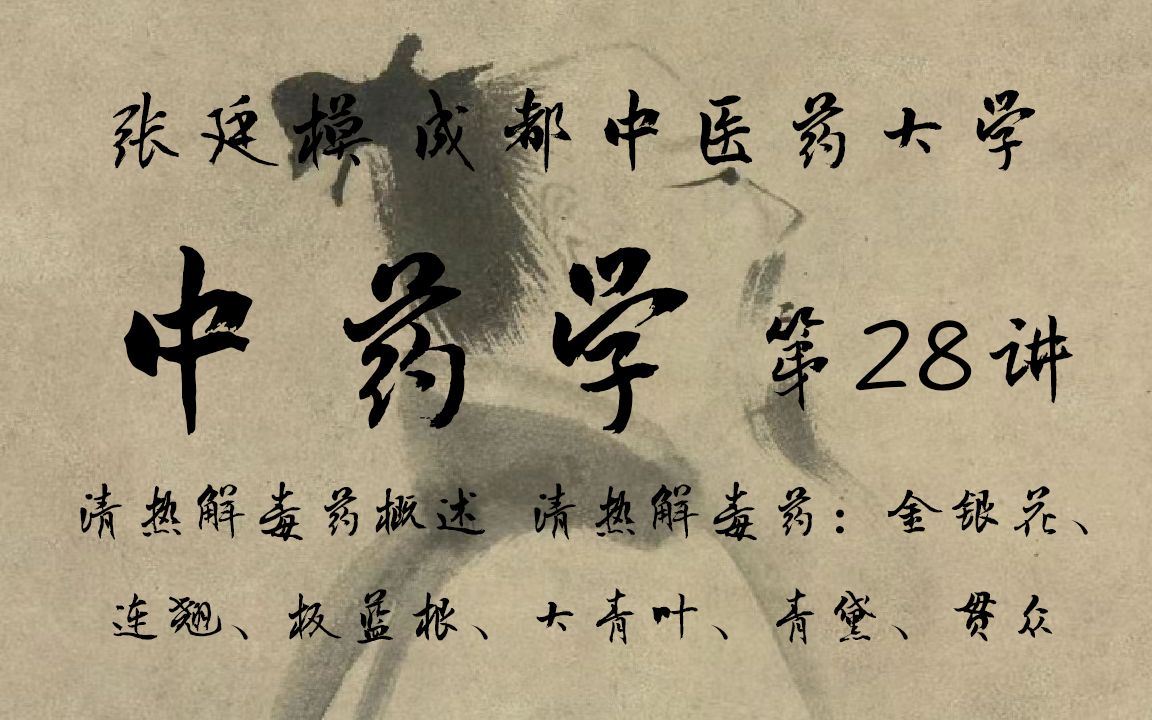 张廷模成都中医药大学
中药学 第28讲
清热解毒药概述 清热解毒药：金银花、
连翘、板蓝根、大青叶、青黛、贯众